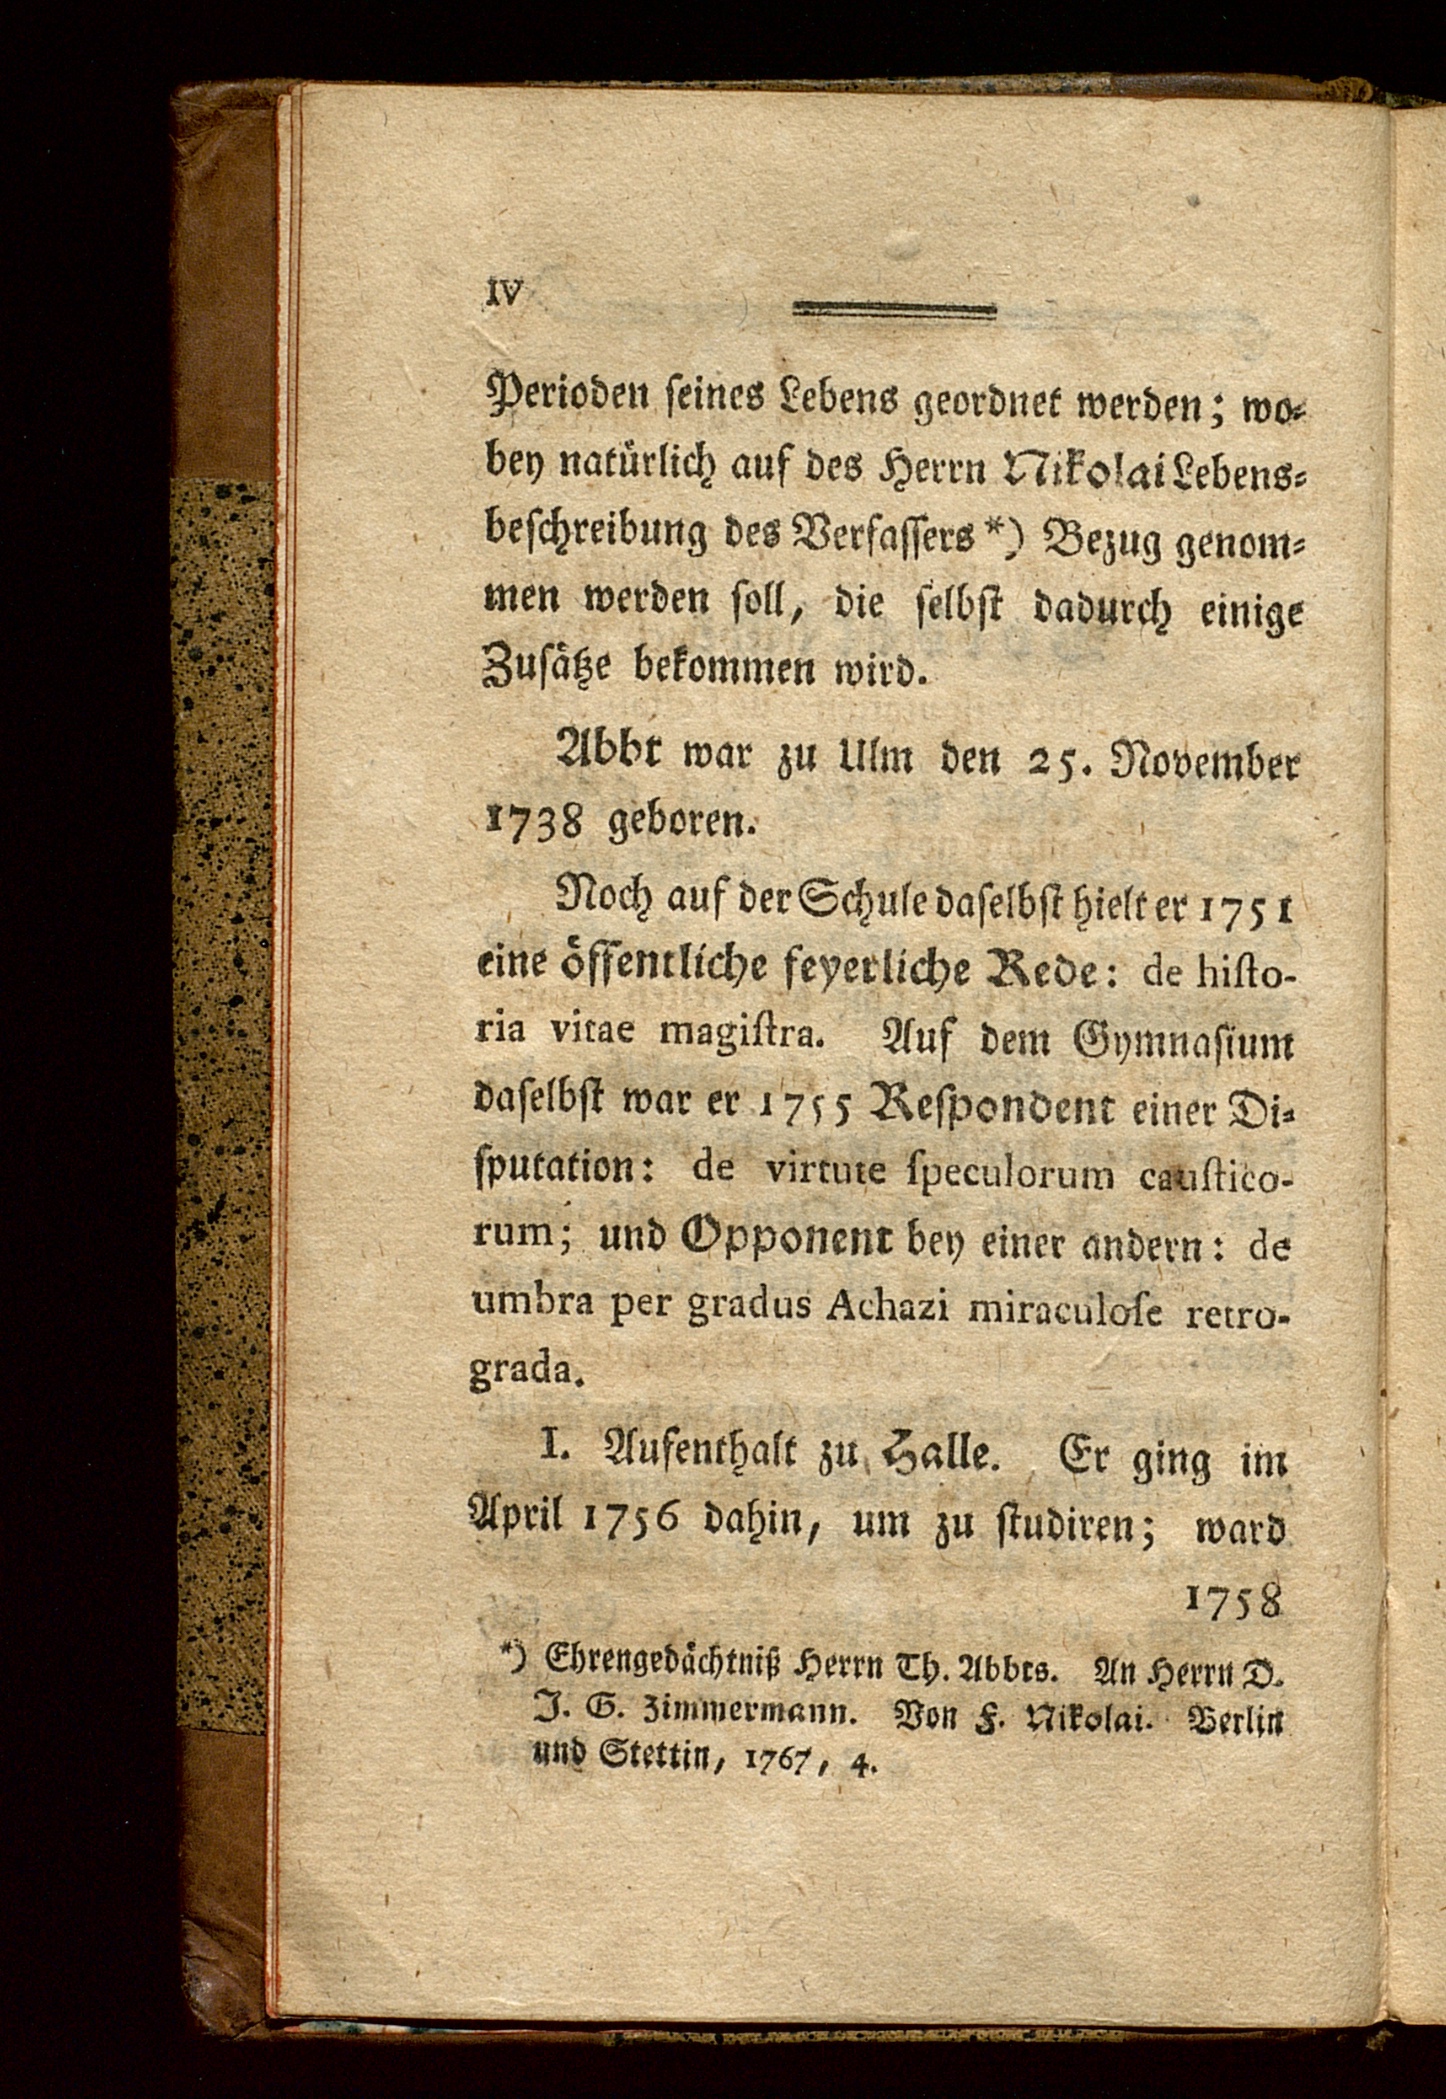 IV
Perioden ſeines Lebens geordnet werden; wo⸗
bey natürlich auf des Herrn Nikolai Lebens⸗
beſchreibung des Verfaſſers *) Bezug genom⸗
men werden ſoll, die ſelbſt dadurch einige
Zuſätze bekommen wird.
Abbt war zu Ulm den 25. November
1738 geboren.
Noch auf der Schule daſelbſt hielt er 1751
eine öffentliche feyerliche Rede: de hiſto-
ria vitae magiſtra. Auf dem Gymnaſium
daſelbſt war er 1755 Reſpondent einer Di⸗
ſputation: de virtute ſpeculorum cauſtico-
rum; und Opponent bey einer andern: de
umbra per gradus Achazi miraculoſe retro-
grada.
I. Aufenthalt zu Halle. Er ging im
April 1756 dahin, um zu ſtudiren; ward
1758
*) Ehrengedächtniß Herrn Th. Abbts. An Herrn D.
J. G. Zimmermann. Von F. Nikolai. Berlin
und Stettin, 1767, 4.